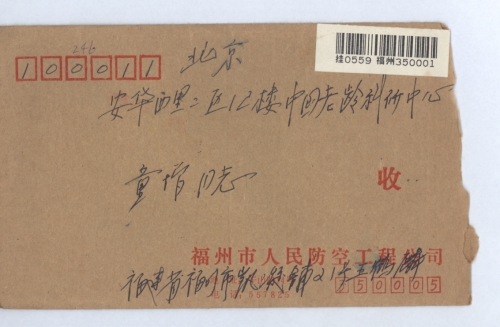 246
100011
北京
桂0559 福州350001
安华西里二区12楼中国老龄科研中心
童增同志
收
福州市人民防空工程公司
福建省福州市凯旋铺21号
350005